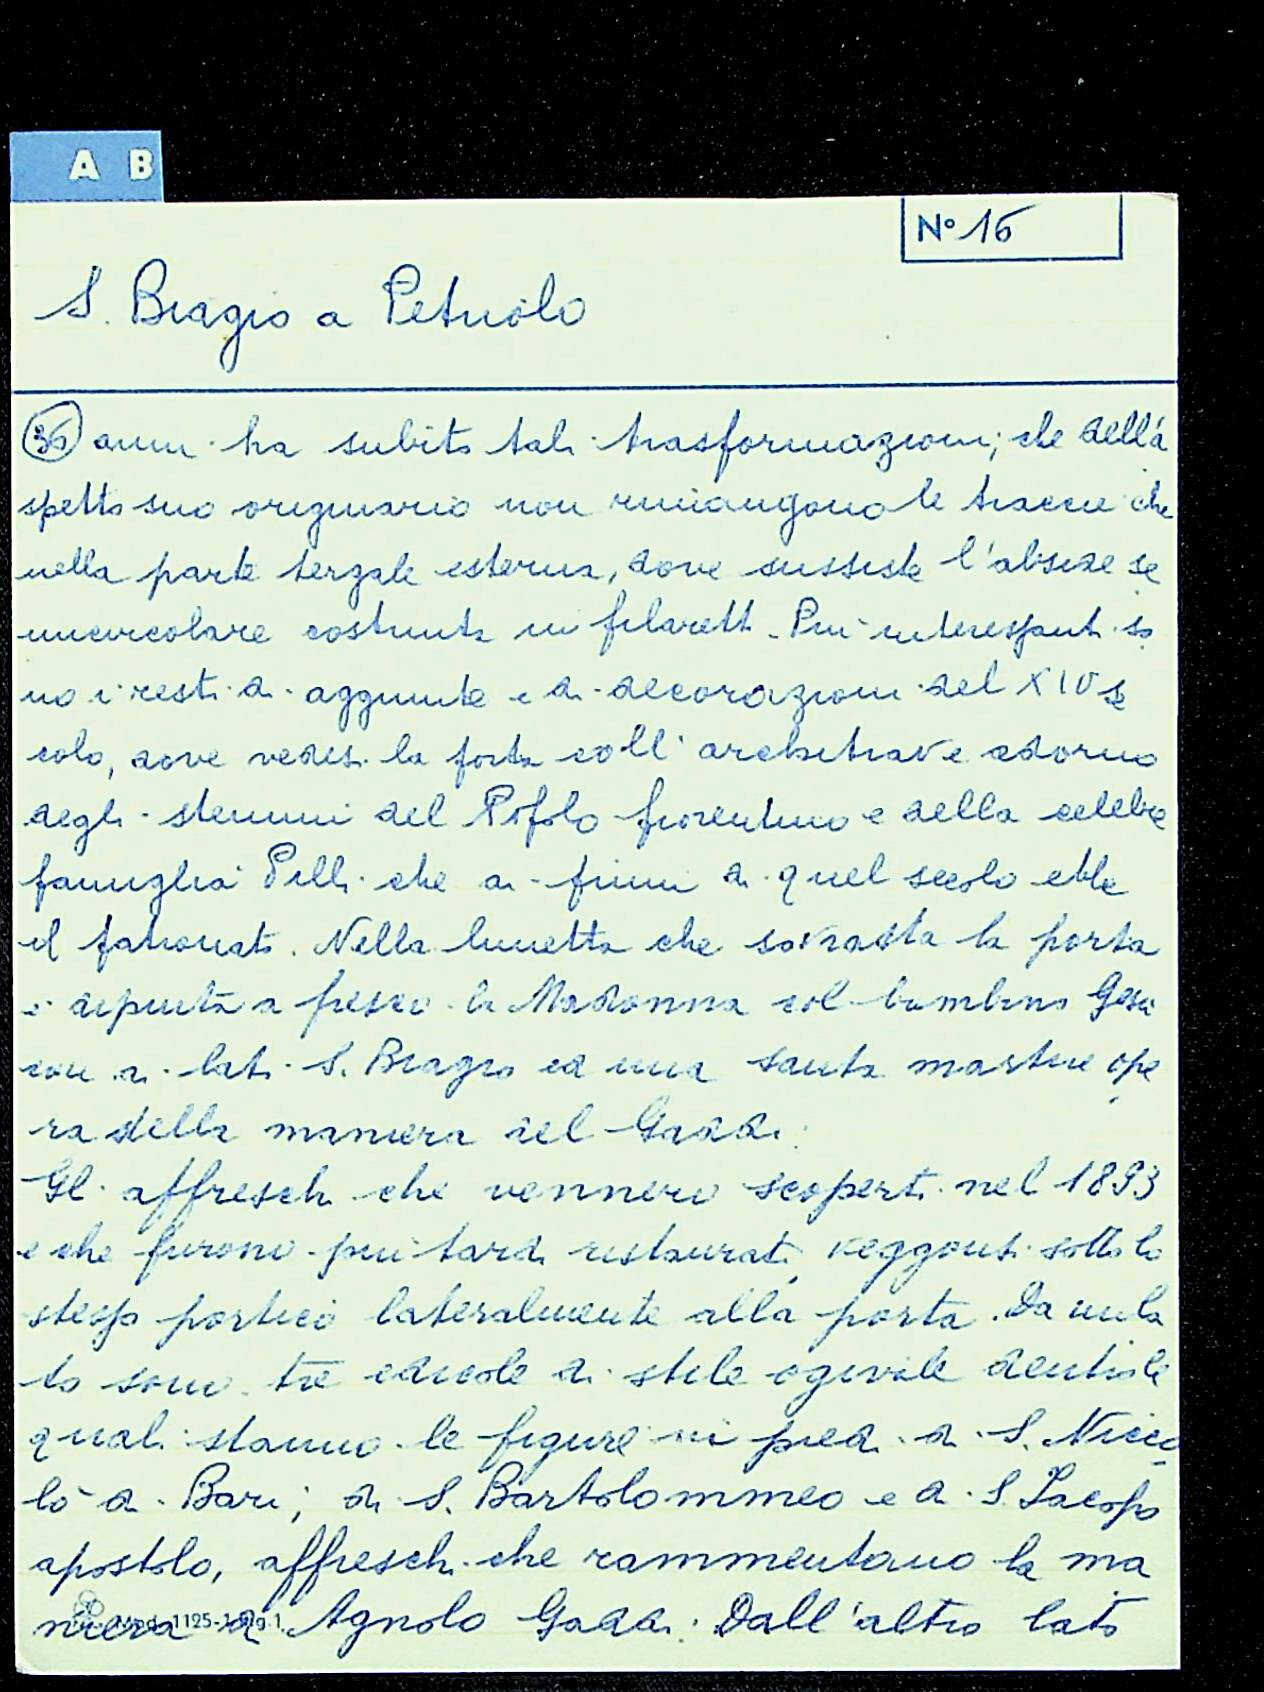 A B
N° 16
S. Biagio a Petriolo
36 anni ha subito tali trasformazioni; che dell'a
spetto suo originario non rimangono le tracce che
nella parte tergale esterna, dove sussiste l'abside se
micircolare costruita in filaretti. Più interessanti so
no i resti di aggiunte e di decorazioni del XIV se
colo, dove vedesi la porta coll'architrave adorno
degli stemmi del Popolo fiorentino e della celebre
famiglia Pilli che ai primi di quel secolo ebbe
il patronato. Nella lunetta che sovrasta la porta
è dipinta a fresco la Madonna col bambino Gesù
con ai lati S. Biagio ed una santa martire ope
ra della maniera del Gaddi.
Gli affreschi che vennero scoperti nel 1893
e che furono più tardi restaurati, veggonsi sotto lo
stesso portico lateralmente alla porta. Da un la
to sono tre edicole di stile ogivale dentro le
quali stanno le figure in piedi di S. Nicco
lò di Bari; di S. Bartolommeo e di S. Jacopo
apostolo, affreschi che rammentano la ma
niera di Agnolo Gaddi. Dall'altro lato
Mod. 1125-1 Fig. 1